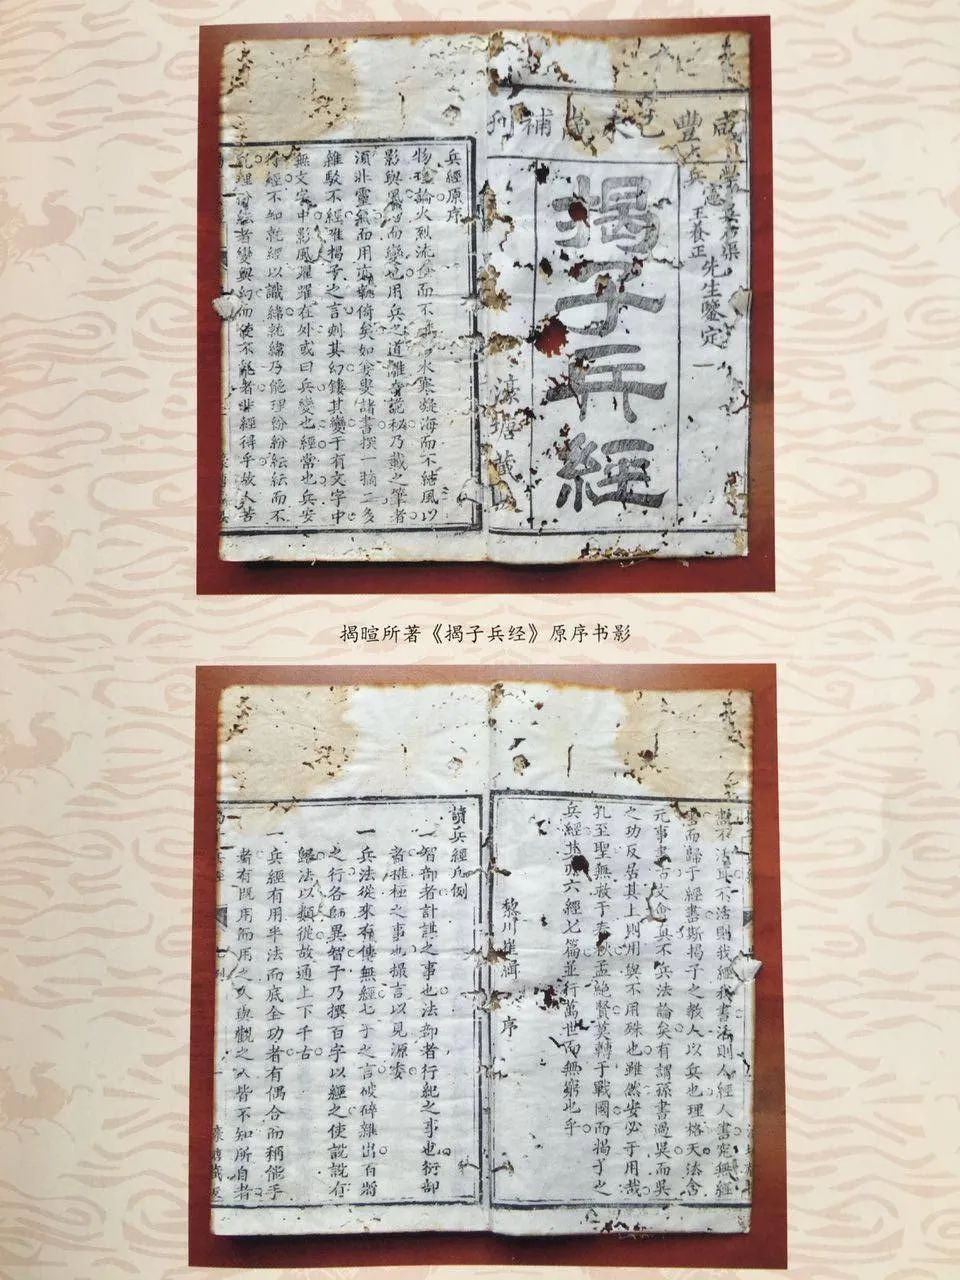 咸豐己未歲補刊
王養正先生鑒定
揭子兵經
濠塘藏
兵經原序
物理論火烈流金而不水寒凝海而不結風以
影與而變也用兵之道離詭秘乃載之筆者
須非靈氣而用倚矣如諸書撰一摘二多
雜駁不經惟揭子之言刺其幻鏤其變于有文字中
無文字中影風躍躍在外或曰兵變也經常也兵安
行經不知就經以識緯就緯乃能理紛紛紜紜而不
亂理者變與幻而使不能者非經得乎故人苦
揭暄所著《揭子兵经》原序书影
不活耳不活則我經我書活則人經人書究無經
書而歸于經書斯揭子之教人以兵也理格天法含
元事書古文命與不兵法論矣有謂孫書過吳而吳
之功反居其上則用與不用殊也雖然安必于用哉
孔至聖無救于春秋孟絕賢莫轉于戰國而揭子之
兵經其與六經七篇並行萬世而無窮也乎
黎川緝序
讀兵經凡例
一智部者計謀之事也法部者行紀之事也衍部
者推極之事也撮言以見源委
一兵法從來有傳無經七子之言破碎雜出百將
之行各師異智子乃撰百字以經之使說說有
歸法以類從故通上下千古
一兵經有用半法而底全功者有偶合而稱能手
者有既用而用之人與觀之人皆不知所自者